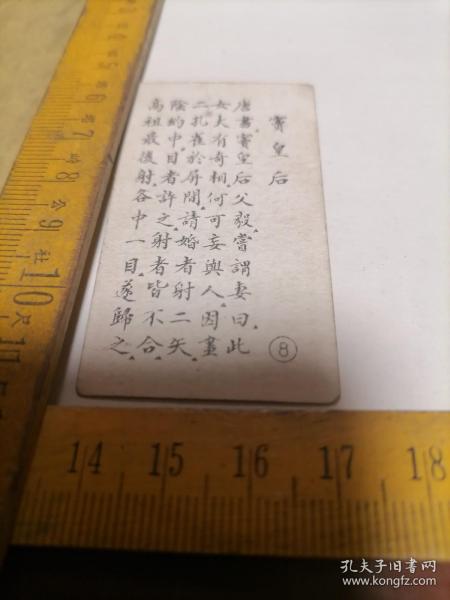 竇皇后
唐書、竇皇后父毅、嘗謂妻曰、此
女大有奇相、何可妄與人、因畫
二孔雀於屏間、請婚者射二矢、
陰約中目者許之、射者皆不合、
高祖最後射、各中一目、遂歸之、
8
6
7
8
9
10
尺
14 15 16 17 18
孔夫子旧书网
www.kongfz.com